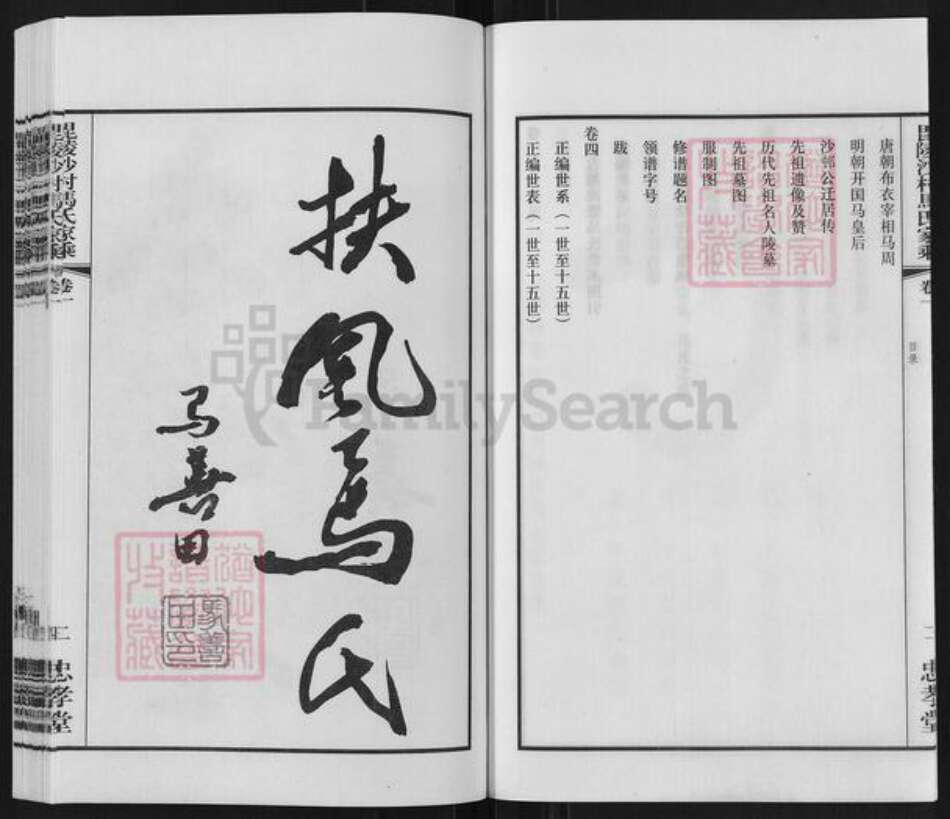 唐朝布衣宰相马周
明朝开国马皇后
沙邨公迁居传
先祖遗像及赞
历代先祖名人陵墓
先祖墓图
服制图
修谱题名
领谱字号
跋
卷四
正编世系（一世至十五世）
正编世表（一世至十五世）
目录
二
忠孝堂
扶風馬氏
马善田
馬善田印
毘陵沙村馬氏家乘
卷一
二
忠孝堂
FamilySearch